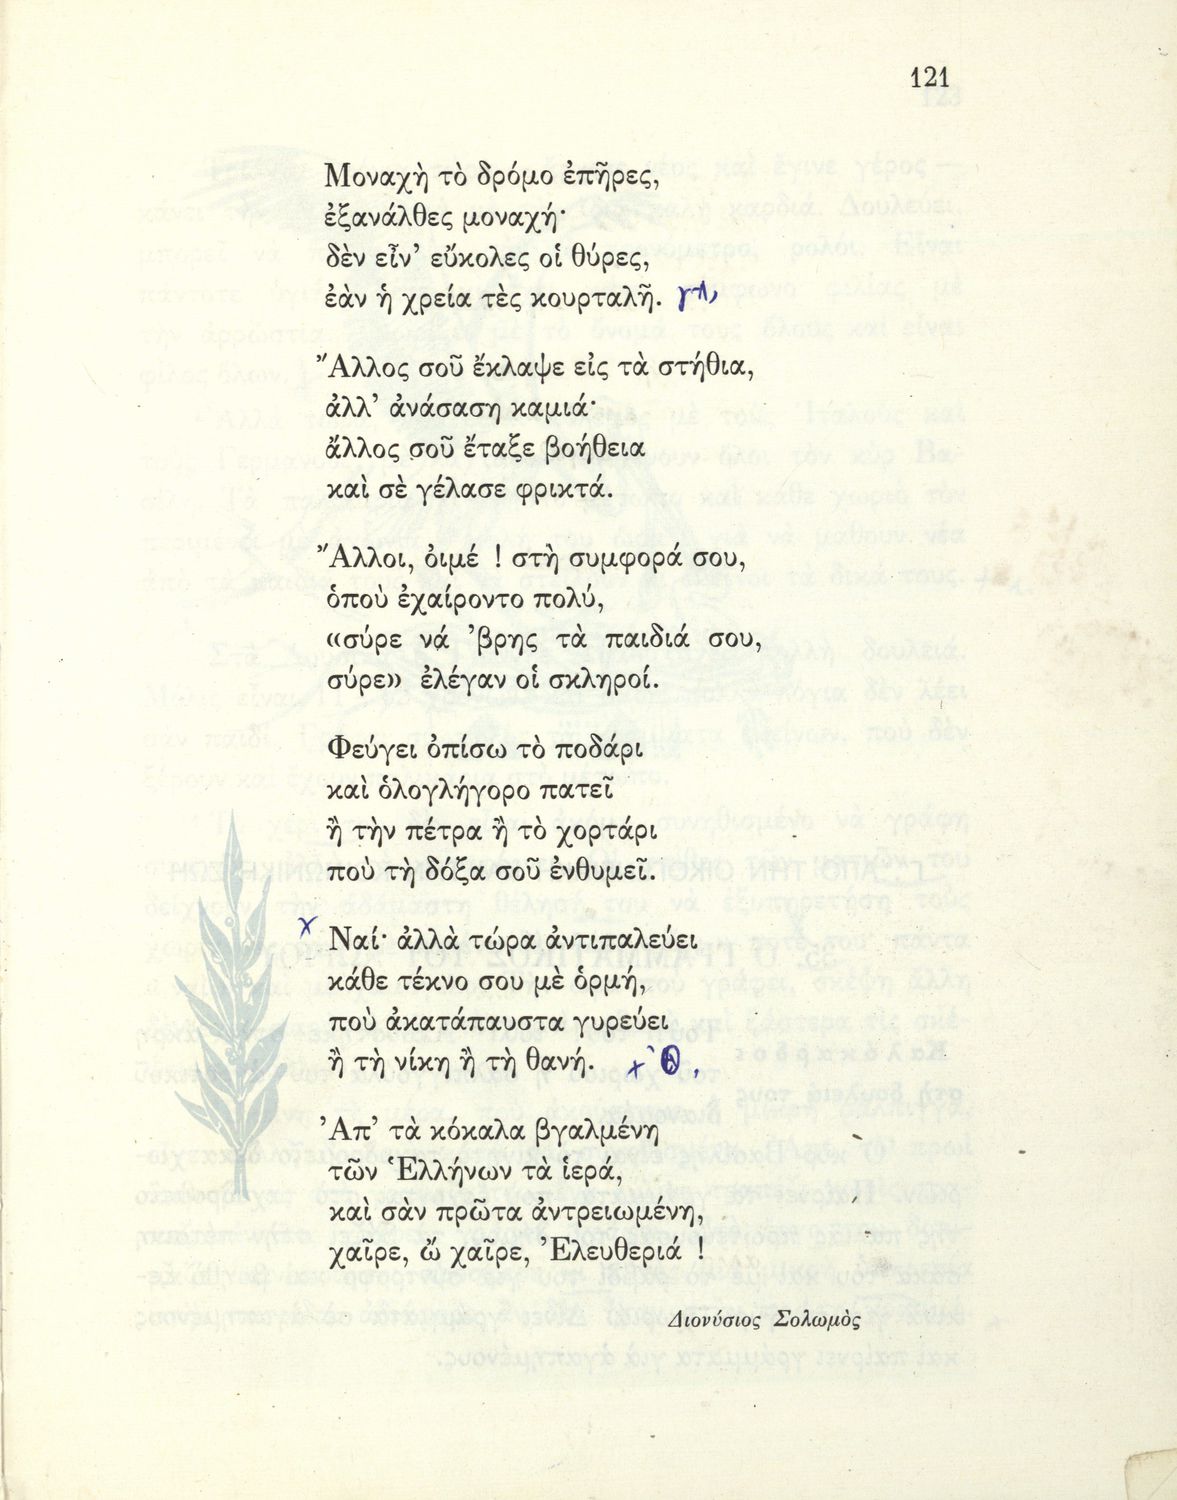 121
Μοναχὴ τὸ δρόμο ἐπῆρες,
ἐξανάλθες μοναχή·
δὲν εἶν’ εὔκολες οἱ θύρες,
ἐὰν ἡ χρεία τὲς κουρταλῆ.
Ἄλλος σοῦ ἔκλαψε εἰς τὰ στήθια,
ἀλλ’ ἀνάσαση καμιά·
ἄλλος σοῦ ἔταξε βοήθεια
καὶ σὲ γέλασε φρικτά.
Ἄλλοι, ὀιμέ ! στὴ συμφορά σου,
ὁποὺ ἐχαίροντο πολύ,
«σύρε νά ’βρης τὰ παιδιά σου,
σύρε» ἐλέγαν οἱ σκληροί.
Φεύγει ὀπίσω τὸ ποδάρι
καὶ ὁλογλήγορο πατεῖ
ἢ τὴν πέτρα ἢ τὸ χορτάρι
ποὺ τὴ δόξα σοῦ ἐνθυμεῖ.
Ναί· ἀλλὰ τώρα ἀντιπαλεύει
κάθε τέκνο σου μὲ ὁρμή,
ποὺ ἀκατάπαυστα γυρεύει
ἢ τὴ νίκη ἢ τὴ θανή.
Ἀπ’ τὰ κόκαλα βγαλμένη
τῶν Ἑλλήνων τὰ ἱερά,
καὶ σὰν πρῶτα ἀντρειωμένη,
χαῖρε, ὢ χαῖρε, Ἐλευθεριά !
Διονύσιος Σολωμὸς